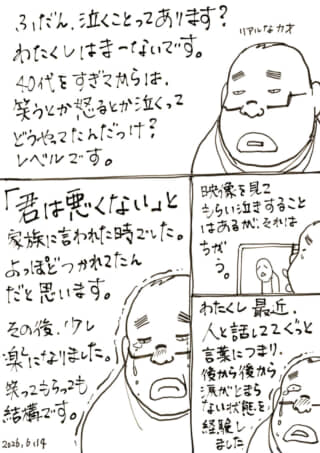 ふだん、泣くことってあります?
わたくしはまーないです。
40代をすぎてからは、
笑うとか怒るとか泣くって
どうやってたんだっけ?
レベルです。
リアルなカオ
映像を見て
もらい泣きすること
はあるが、それは
ちが
う。
わたくし最近、
人と話しててぐっと
言葉につまり、
後から後から
涙がとまら
ない状態を
経験し
ました
「君は悪くない」と
家族に言われた時でした。
よっぽどつかれてたん
だと思います。
その後、少し
楽になりました。
笑ってもらっても
結構です。
2026.6.14